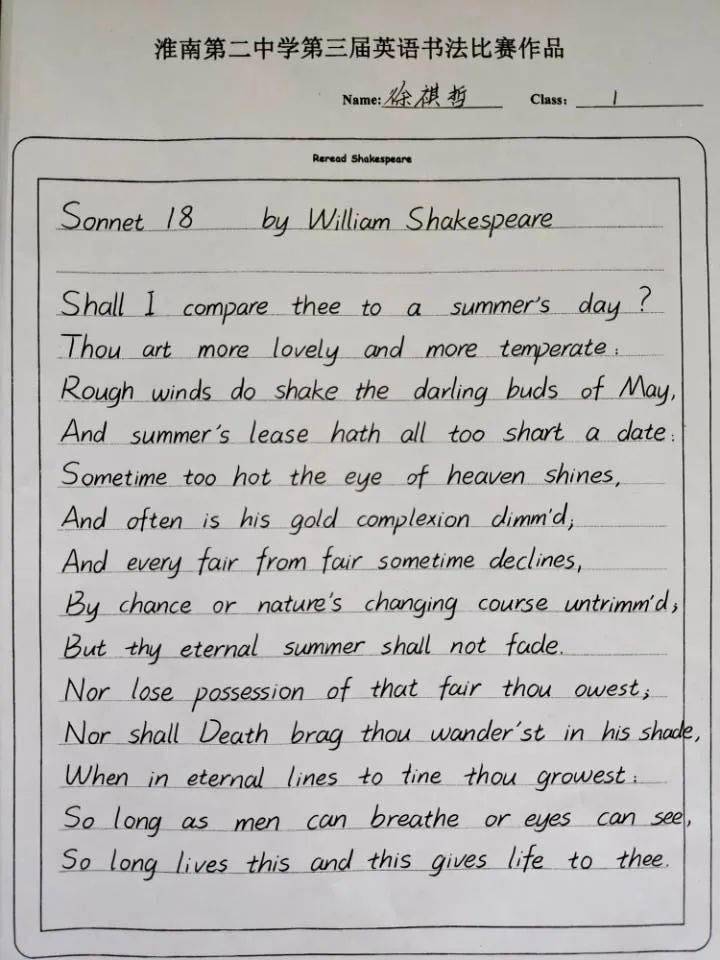 淮南第二中学第三届英语书法比赛作品
Name: 徐祺哲 Class: 1
Reread Shakespeare
Sonnet 18 by William Shakespeare
Shall I compare thee to a summer's day?
Thou art more lovely and more temperate:
Rough winds do shake the darling buds of May,
And summer's lease hath all too shart a date:
Sometime too hot the eye of heaven shines,
And often is his gold complexion dimm'd;
And every fair from fair sometime declines,
By chance or nature's changing course untrimm'd;
But thy eternal summer shall not fade.
Nor lose possession of that fair thou owest;
Nor shall Death brag thou wander'st in his shade,
When in eternal lines to tine thou growest:
So long as men can breathe or eyes can see,
So long lives this and this gives life to thee.